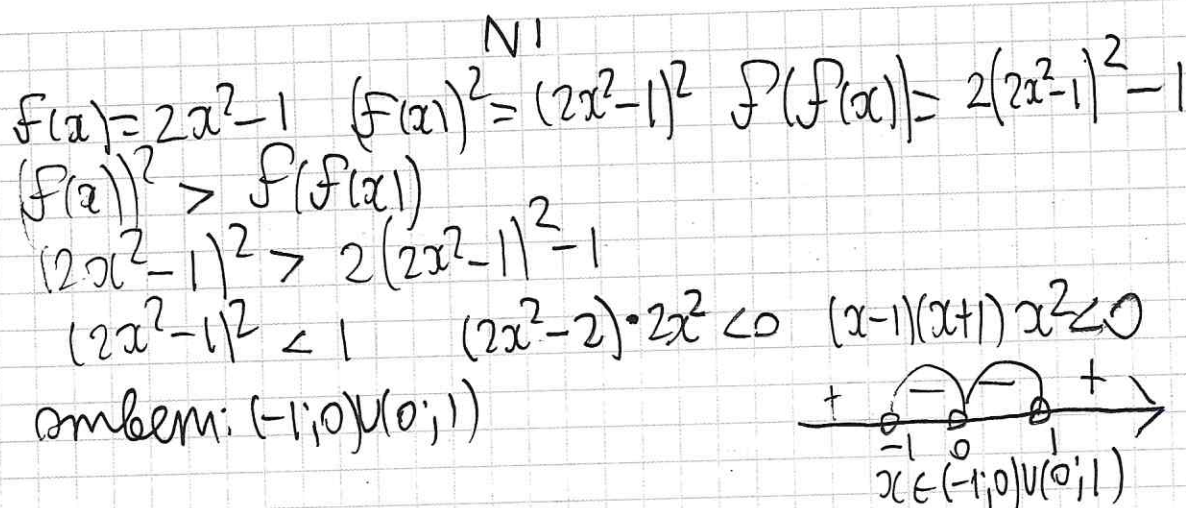 N1
f(x)=2x²-1 (f(x))²=(2x²-1)² f(f(x))=2(2x²-1)²-1
(f(x))²>f(f(x))
(2x²-1)²>2(2x²-1)²-1
(2x²-1)²<1 (2x²-2)·2x²<0 (x-1)(x+1)x²<0
+ - - +
ответ: (-1;0)∪(0;1)
-1 0 1
x∈(-1;0)∪(0;1)